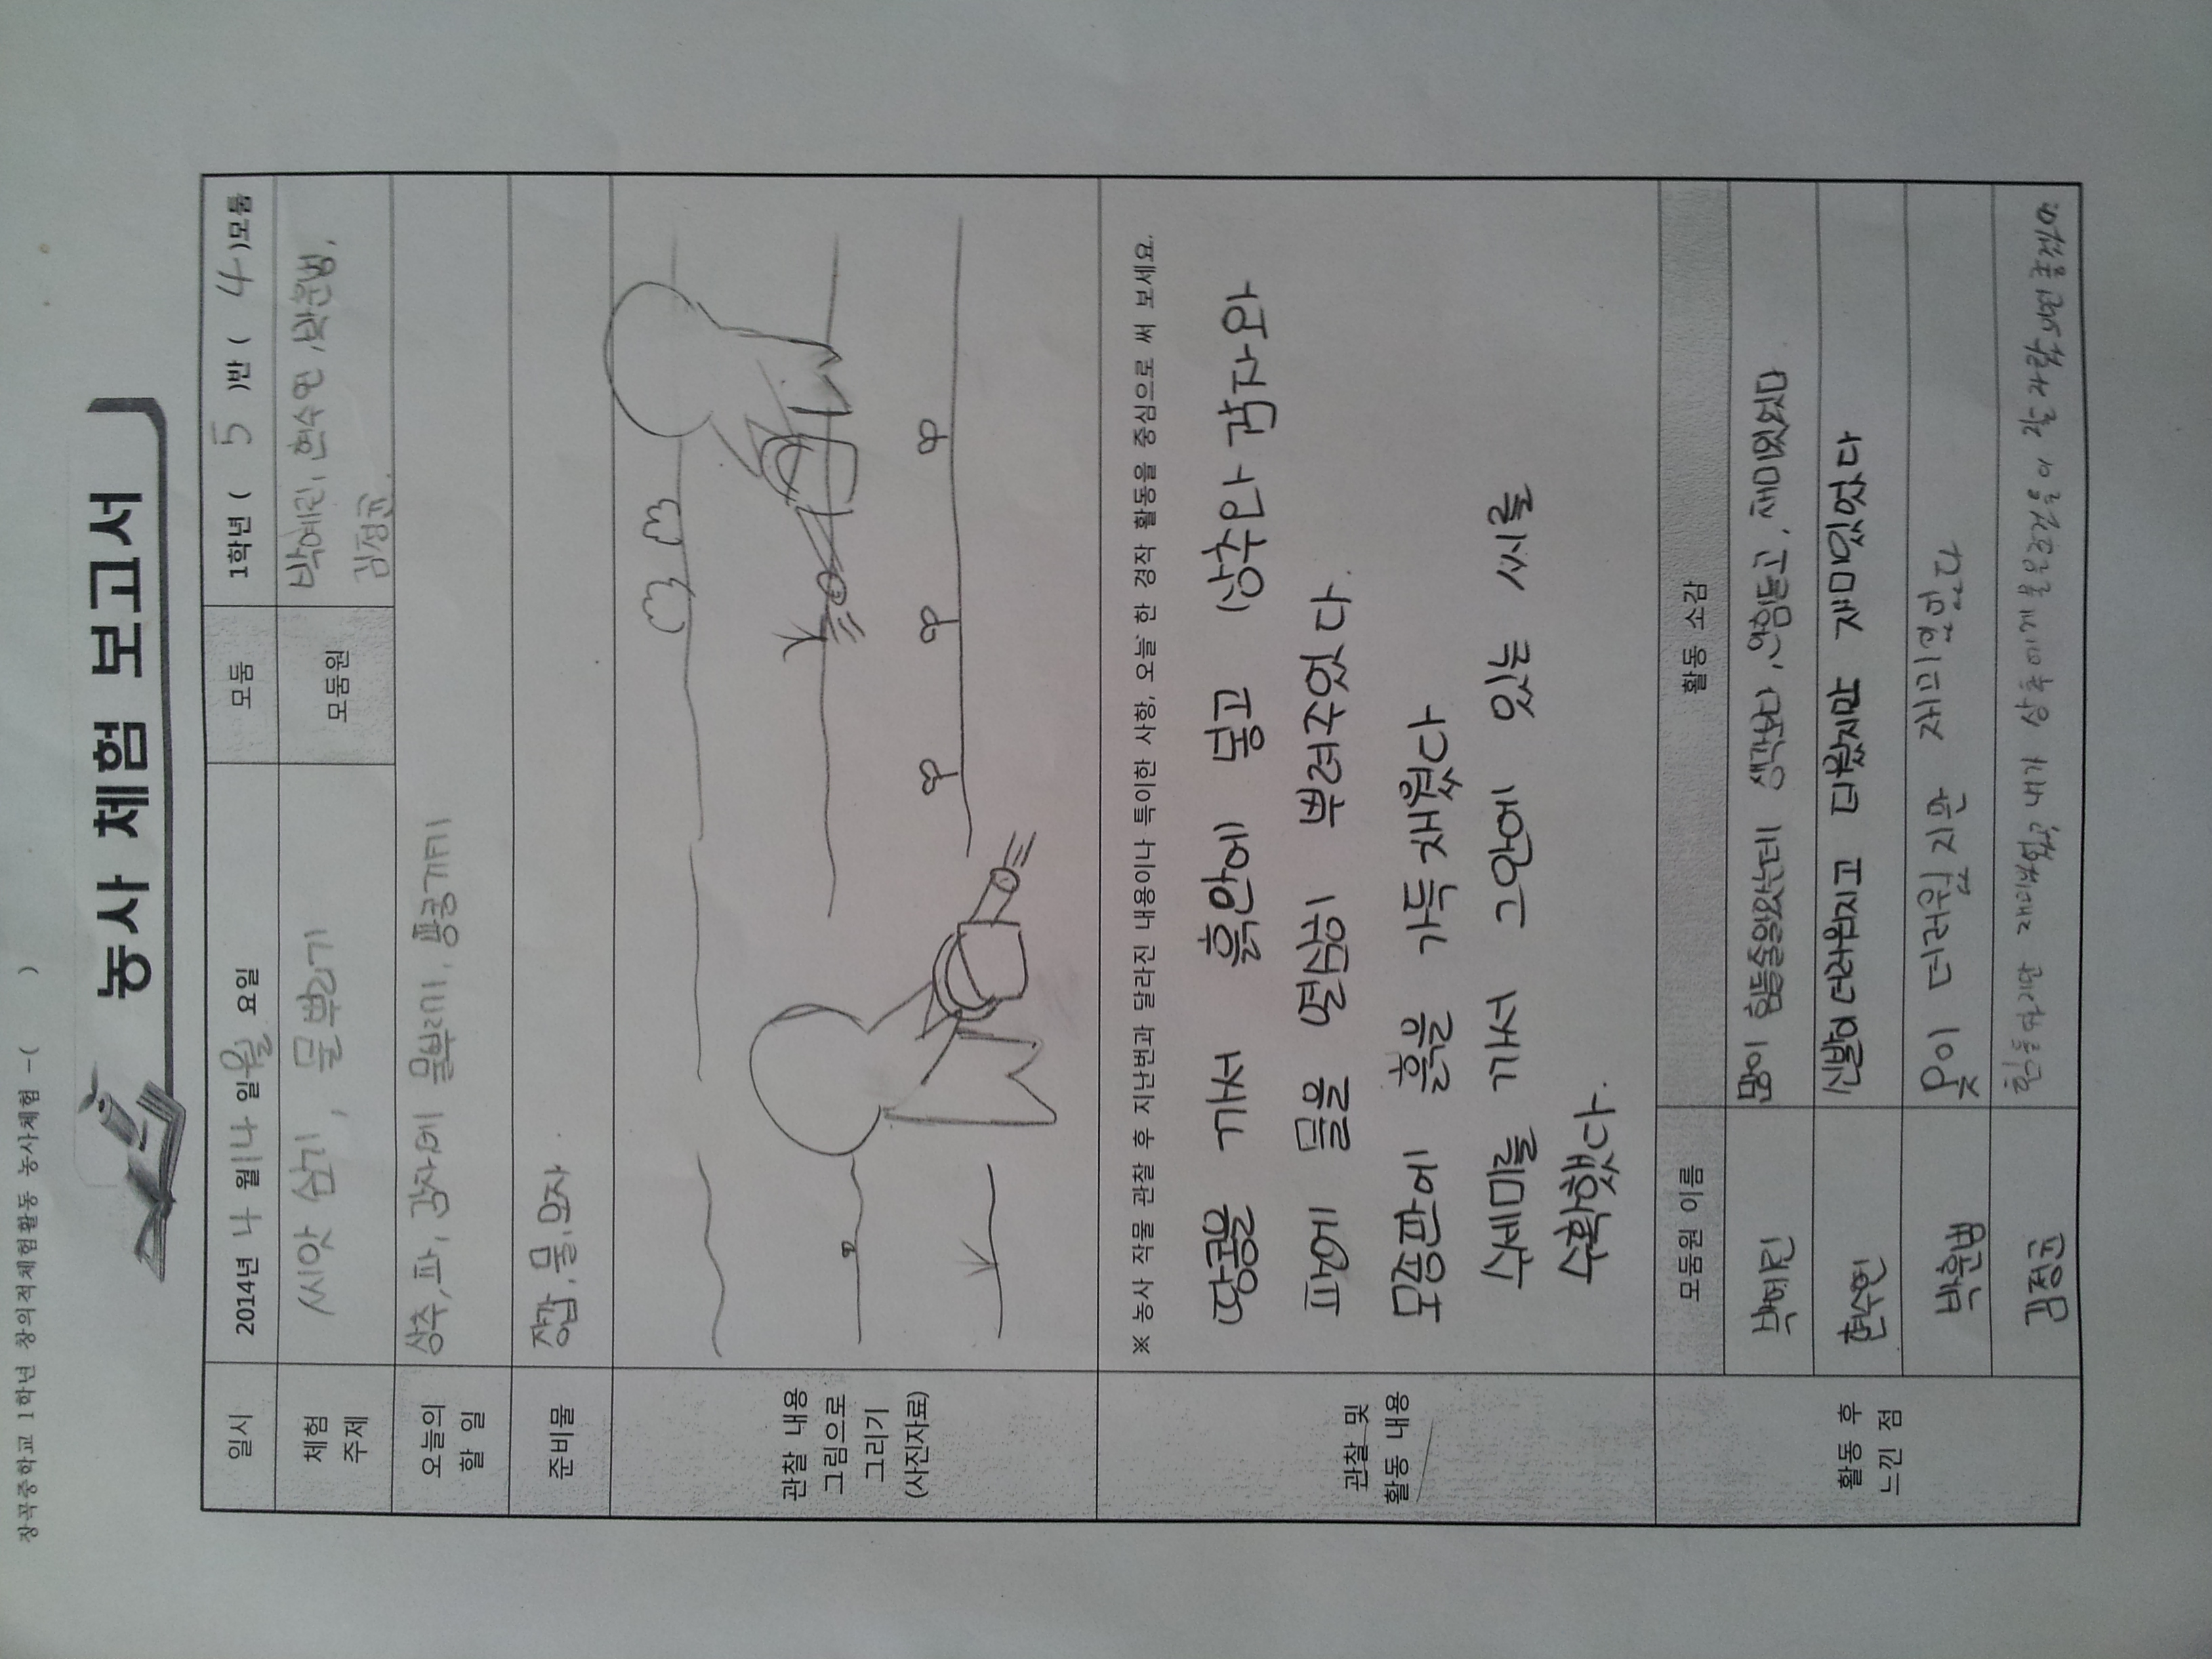 창곡중학교 1학년 창의적체험활동 농사체험 -( )
농사 체험 보고서
일시 2014년 4 월 14 일 월 요일 모둠 1학년 ( 5 )반 ( 4 )모둠
체험 주제 씨앗 심기, 물뿌리기 모둠원 박예린, 현수연, 박훈범,
김정균.
오늘의 할 일 상추, 파, 감자에 물뿌리기, 땅콩까기
준비물 장갑, 물, 모자
관찰 내용
그림으로
그리기
(사진자료)
관찰 및
활동 내용
※ 농사 작물 관찰 후 지난번과 달라진 내용이나 특이한 사항, 오늘 한 경작 활동을 중심으로 써 보세요.
땅콩을 까서 흙안에 넣고 상추와 감자와
파에 물을 열심히 뿌려주었다.
모종판에 흙을 가득 채웠다
수세미를 까서 그안에 있는 씨를
수확했다.
활동 후
느낀 점
모둠원 이름 활동 소감
박예린 많이 힘들줄알았는데 생각보다 안힘들고, 재미있었다
현수연 신발이 더러워지고 더웠지만 재미있었다
박훈범 옷이 더러워 지만 재미있었다
김정균 힘들하지만 재미있었고 내가 상추에게 물을준것들이 잘 자랐으면 좋겠어